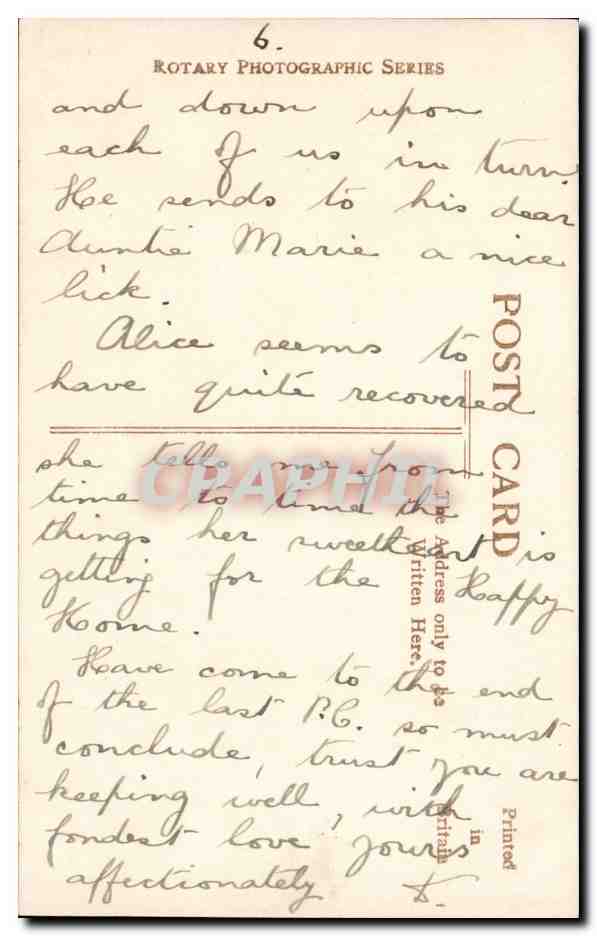 6.
ROTARY PHOTOGRAPHIC SERIES
and down upon
each of us in turn.
He sends to his dear
Auntie Marie a nice
lick.
Alice seems to
have quite recovered
she tells me from
time to time the
things her sweetheart is
getting for the Happy
Home.
Have come to the end
of the last P.C. so must
conclude, trust you are
keeping well, with
fondest love, yours
affectionately
POST CARD
The Address only to be
Written Here.
Printed
in
Britain
CPAPHIL